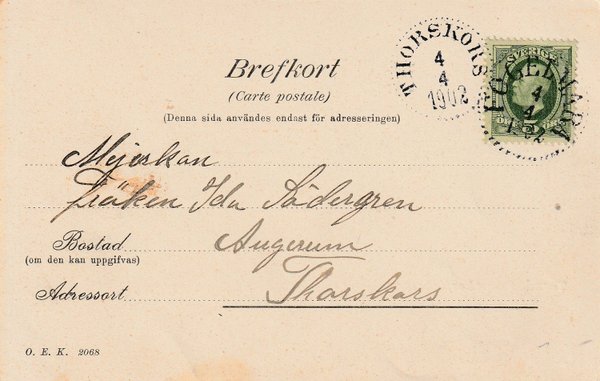 Brefkort
(Carte postale)
(Denna sida användes endast för adresseringen)
THORSKORS
4
4
1902
SVERIGE
EGGELBADA
4
4
Mejerskan
fröken Ida Södergren
Bostad
(om den kan uppgifvas)
Augerum
Adressort
Thorskors
O. E. K. 2068